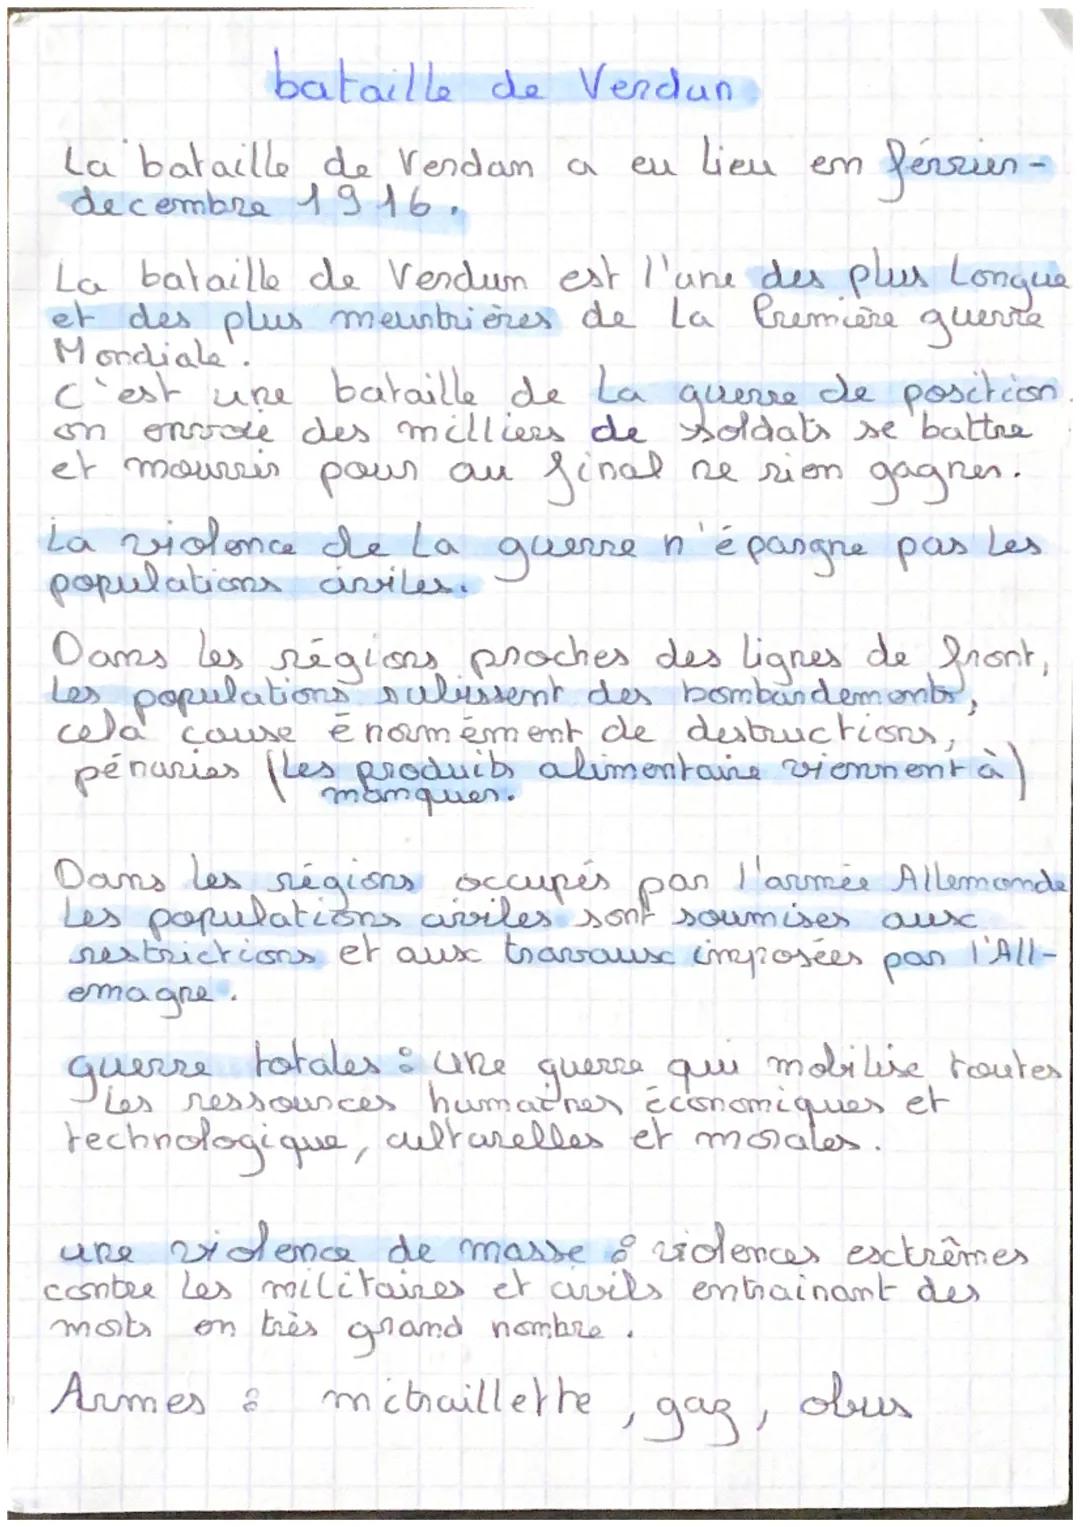 bataille de Verdun
La bataille de Verdan a eu lieu en férrier-
decembre 1916.
La bataille de Verdun est l'une des plus Longue
et des plus meurtrières de La Première guerre
Mondiale.
C'est une bataille de La guerre de position.
on envoie des milliers de soldats se battre
et mourrir pour au final ne rien gagner.
La violence de La guerre n'épargne pas Les
populations civiles.
Dans Les régions proches des lignes de front,
Les populations subissent des bombardements,
cela cause énormément de destructions,
pénuries (Les produits alimentaire viennent à)
manquer.
Dans Les régions occupés par l'armée Allemande
Les populations civiles sont soumises aux
restrictions et aux travaux imposées par l'All-
emagne.
guerre totales : une guerre qui mobilise toutes
Les ressources humaines économiques et
technologique, culturelles et morales.
une violence de masse : violences exctrêmes
contre Les militaires et civils entrainant des
morts en très grand nombre.
Armes : mitraillette, gaz, obus